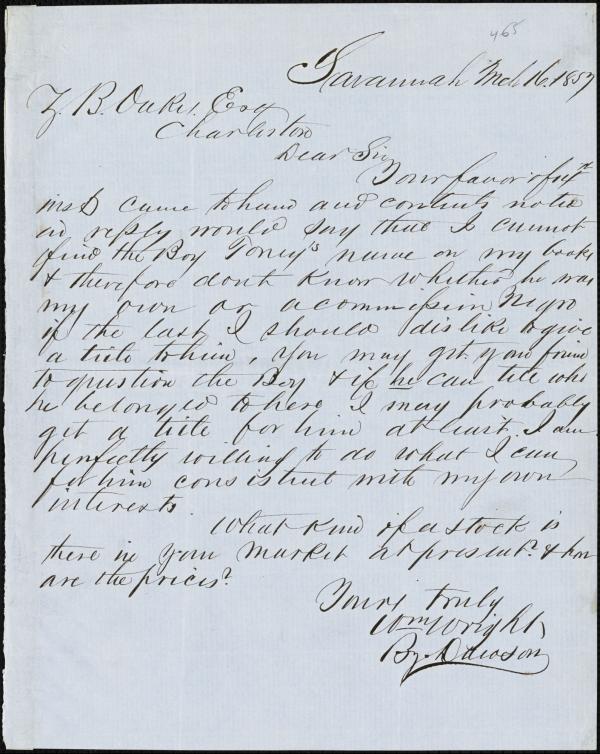 465
Savannah Mch 16. 1857
Z. B. Oakes. Esq
Charleston
Dear Sir
Your favor of
inst came to hand and contents noted
in reply would say that I cannot
find the Boy Toney's name on my books
& therefore dont know whether he was
my own or a commission Negro
if the last I should dislike to give
a title to him, You may get your friend
to question the Boy & if he can tell who
he belonged to here I may probably
get a title for him at least I am
perfectly willing to do what I can
for him consistent with my own
interests.
What kind of a stock is
there in your market at present? & how
are the prices?
Yours truly
Wm Wright
By